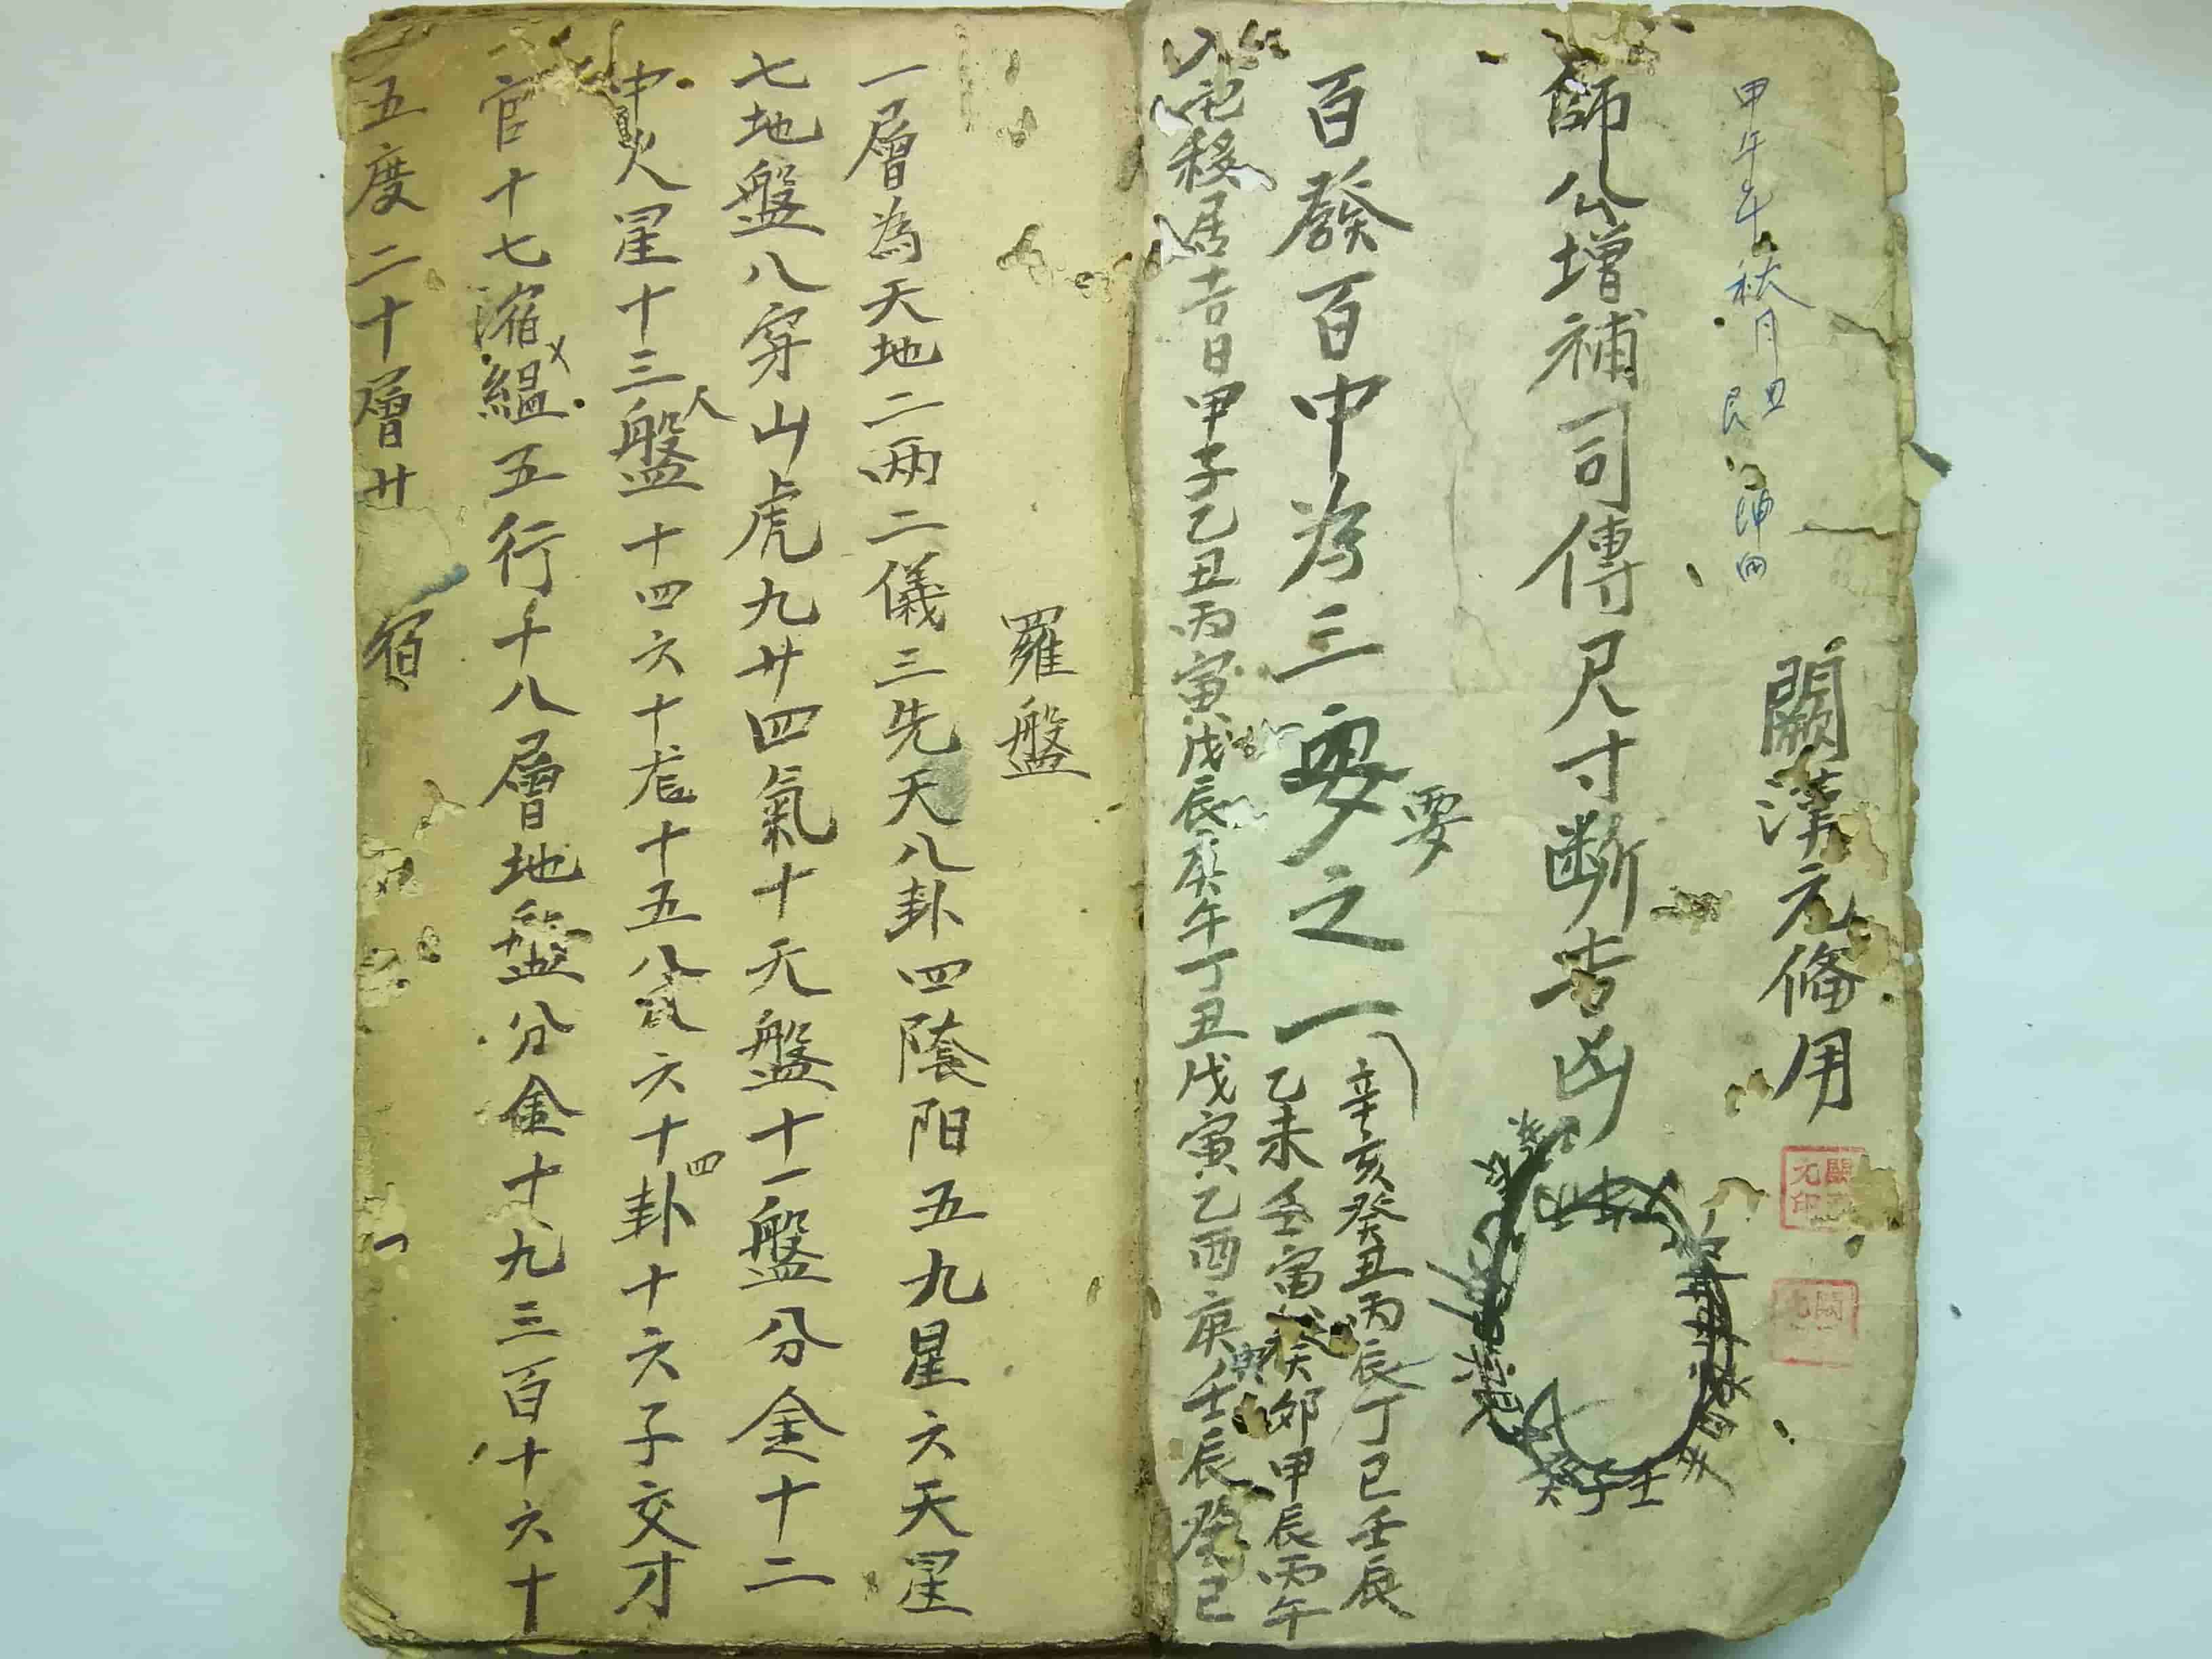 甲午年秋月立
闕漢元俻用
師公增補司傳尺寸断吉凶
要
百發百中為三要之一
辛亥癸丑丙辰丁巳壬辰
乙未壬寅癸卯甲辰丙午
入宅移居吉日甲子乙丑丙寅戊辰庚午丁丑戊寅乙酉庚壬辰癸巳
癸子壬
羅盤
一層為天地二兩二儀三先天八卦四陰阳五九星六天星
七地盤八穿山虎九廿四氣十天盤十一盤分金十二
中火星十三人盤十四六十龙十五八六十四卦十六子交才
官十七渾縕五行十八層地盤分金十九三百十六十
五度二十層廿宿